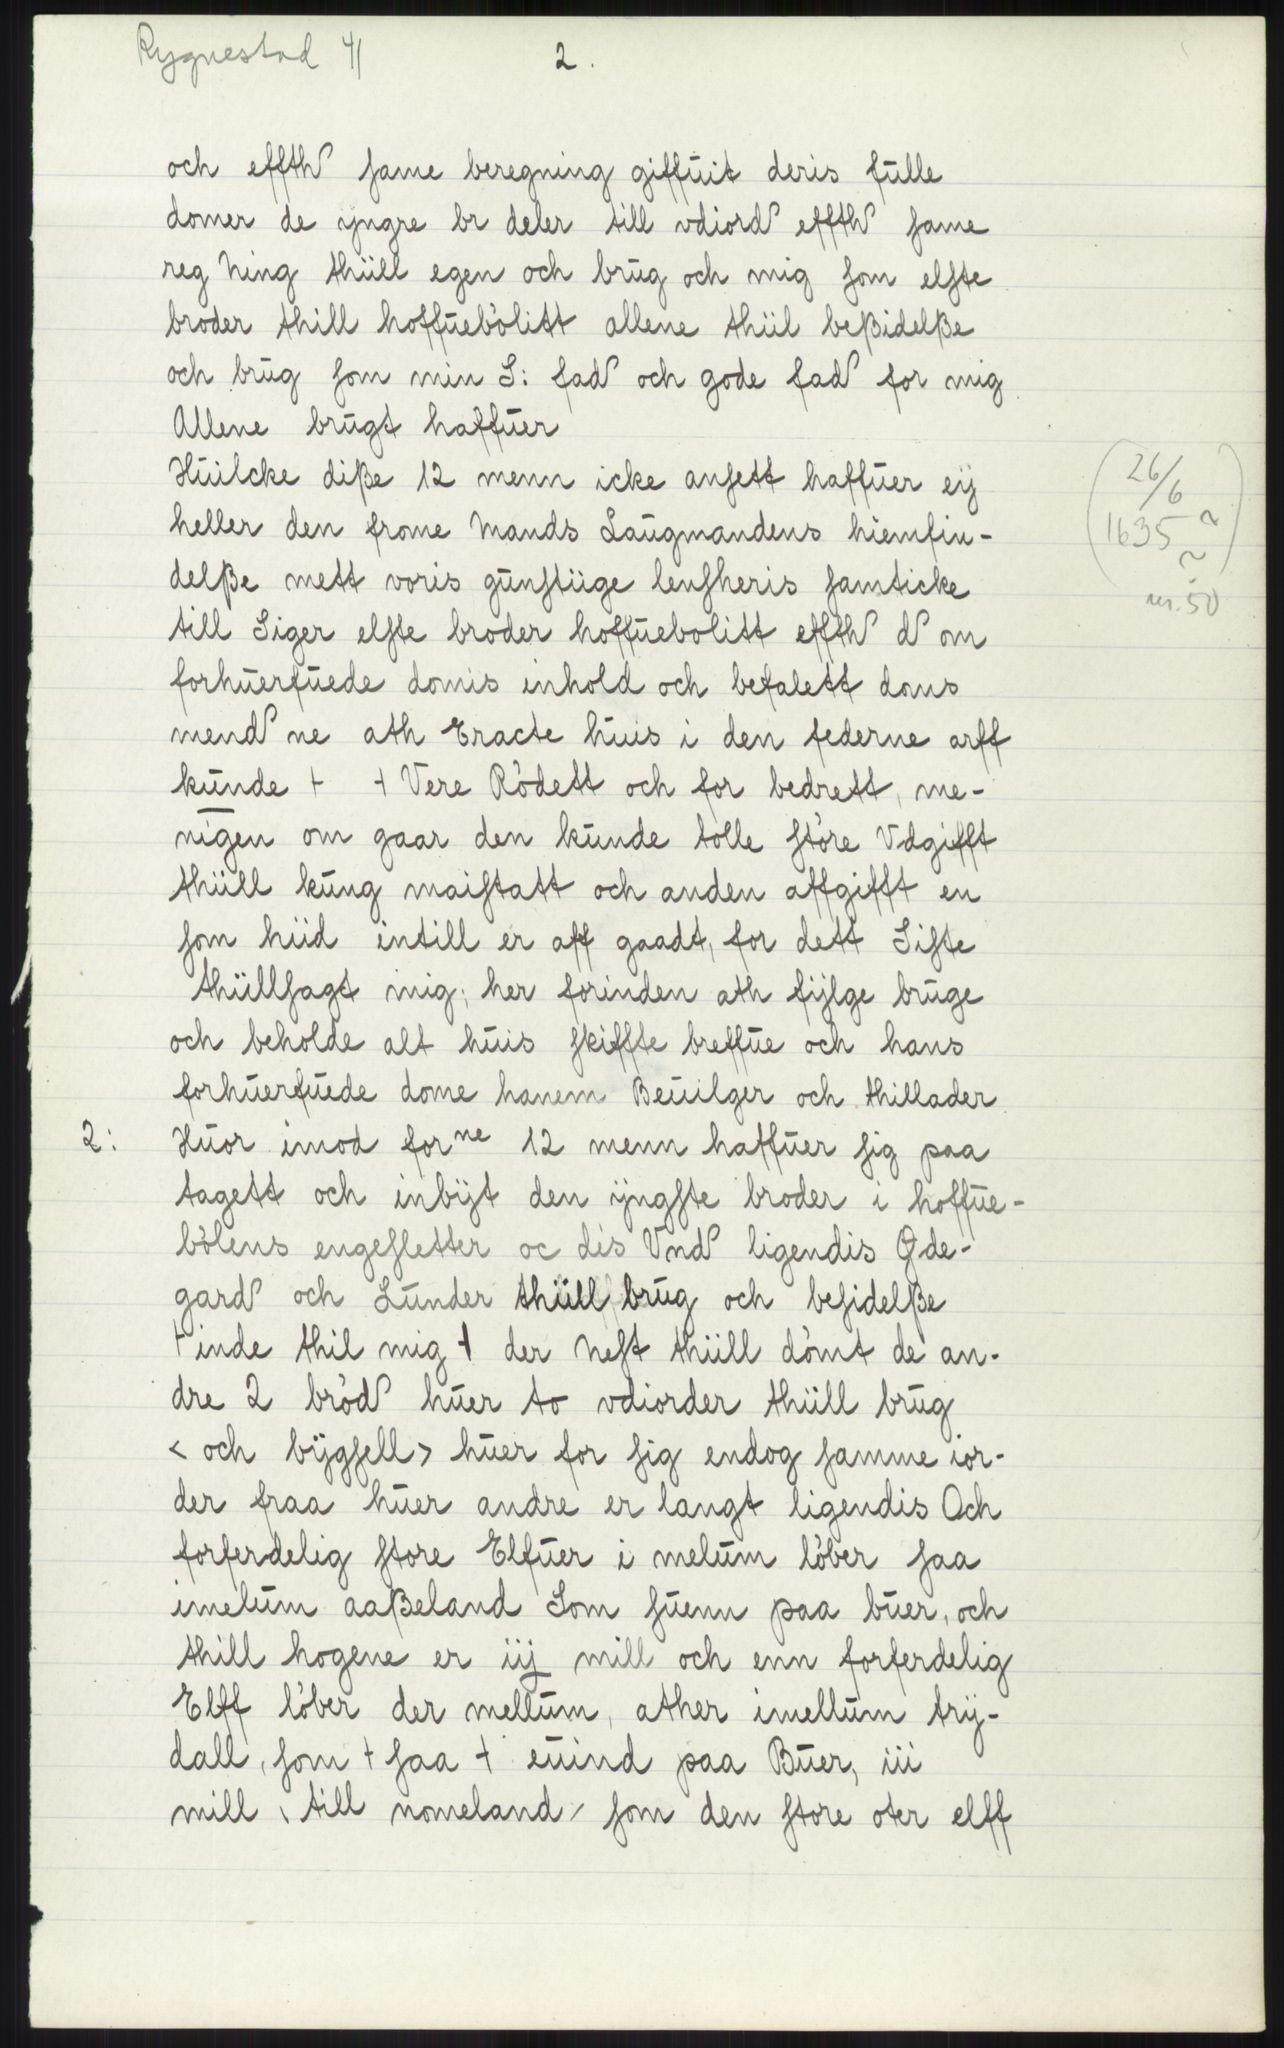 Rygnestad 4/
2.
och effth same beregning giffuit deris fulle
domer de yngre br deler till vdiord effth same
reg Ning thüll egen och brug och mig som elste
broder thill hoffuebólitt allene thüil beßidelße
och brug som min S: fad och gode fad for mig
Allene brugt haffuer
Huilcke diße 12 menn icke ansett haffuer eÿ
heller den frome Mands Laugmandens hiemfin-
delße mett voris gunstüge lensheris samticke
till Siger elste broder hoffuebolitt effth d om
forhuerfuede domis inhold och befalett dans
mend ne ath Eracte huis i den federne arff
kunde + + Vere Ródett och for bedrett, me-
nigen om gaar den kunde tolle störe Vdgifft
thüll kung maistatt och anden affgifft en
som hiid intill er aff gaadt, for dett Siste
thüllsagt mig, her forinden ath fÿlge bruge
och beholde alt huis skiffte breffue och hans
forhuerfuede dome hanem Beuilger och thillader
2: Huor imod for ne 12 menn haffuer sig paa
tagett och inbÿt den ÿngste broder i hoffue-
bólens engesletter oc dis Vnd ligendis Øde-
gard och Lunder thüll brug och besidelße
+ inde thil mig + der Nest thüll dómt de an-
dre 2 bród huer to vdiorder thüll brug
< och bÿgsell > huer for sig endog samme ior-
der fraa huer andre er langt ligendis Och
forferdelig store Elfuer i melum lóber saa
imelum aaßeland Som suenn paa buer, och
thill hogene er iij mill och enn forferdelig
Elff lóber der mellum, ather imellum trÿ-
dall, som + saa + euind paa Buer, iii
mill, till nomeland / som den store oter elff
(26/6
1635 ~
~
nr. 50)